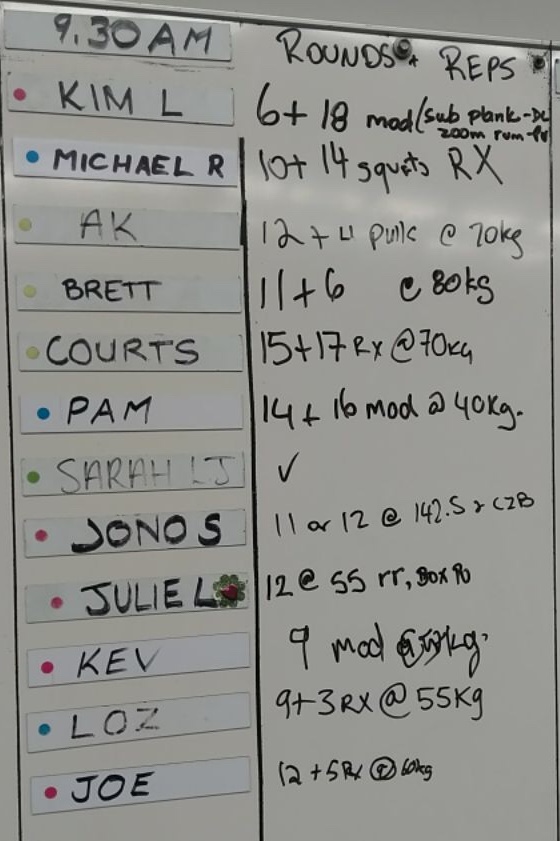 9.30 AM ROUNDS + REPS
KIM L 6+ 18 mod (sub plank-
200m run-
MICHAEL R 10+ 14 squats RX
AK 12 + 4 pulls @ 70kg
BRETT 11+6 @ 80kg
COURTS 15+17 RX @70kg
PAM 14 + 16 mod @ 40kg.
SARAH LJ ✓
JONO S 11 or 12 @ 142.5 C2B
JULIE L 12 @ 55 rr, Box
KEV 9 mod
LOZ 9+3 RX @ 55Kg
JOE 12 +5 Rx @ 60kg